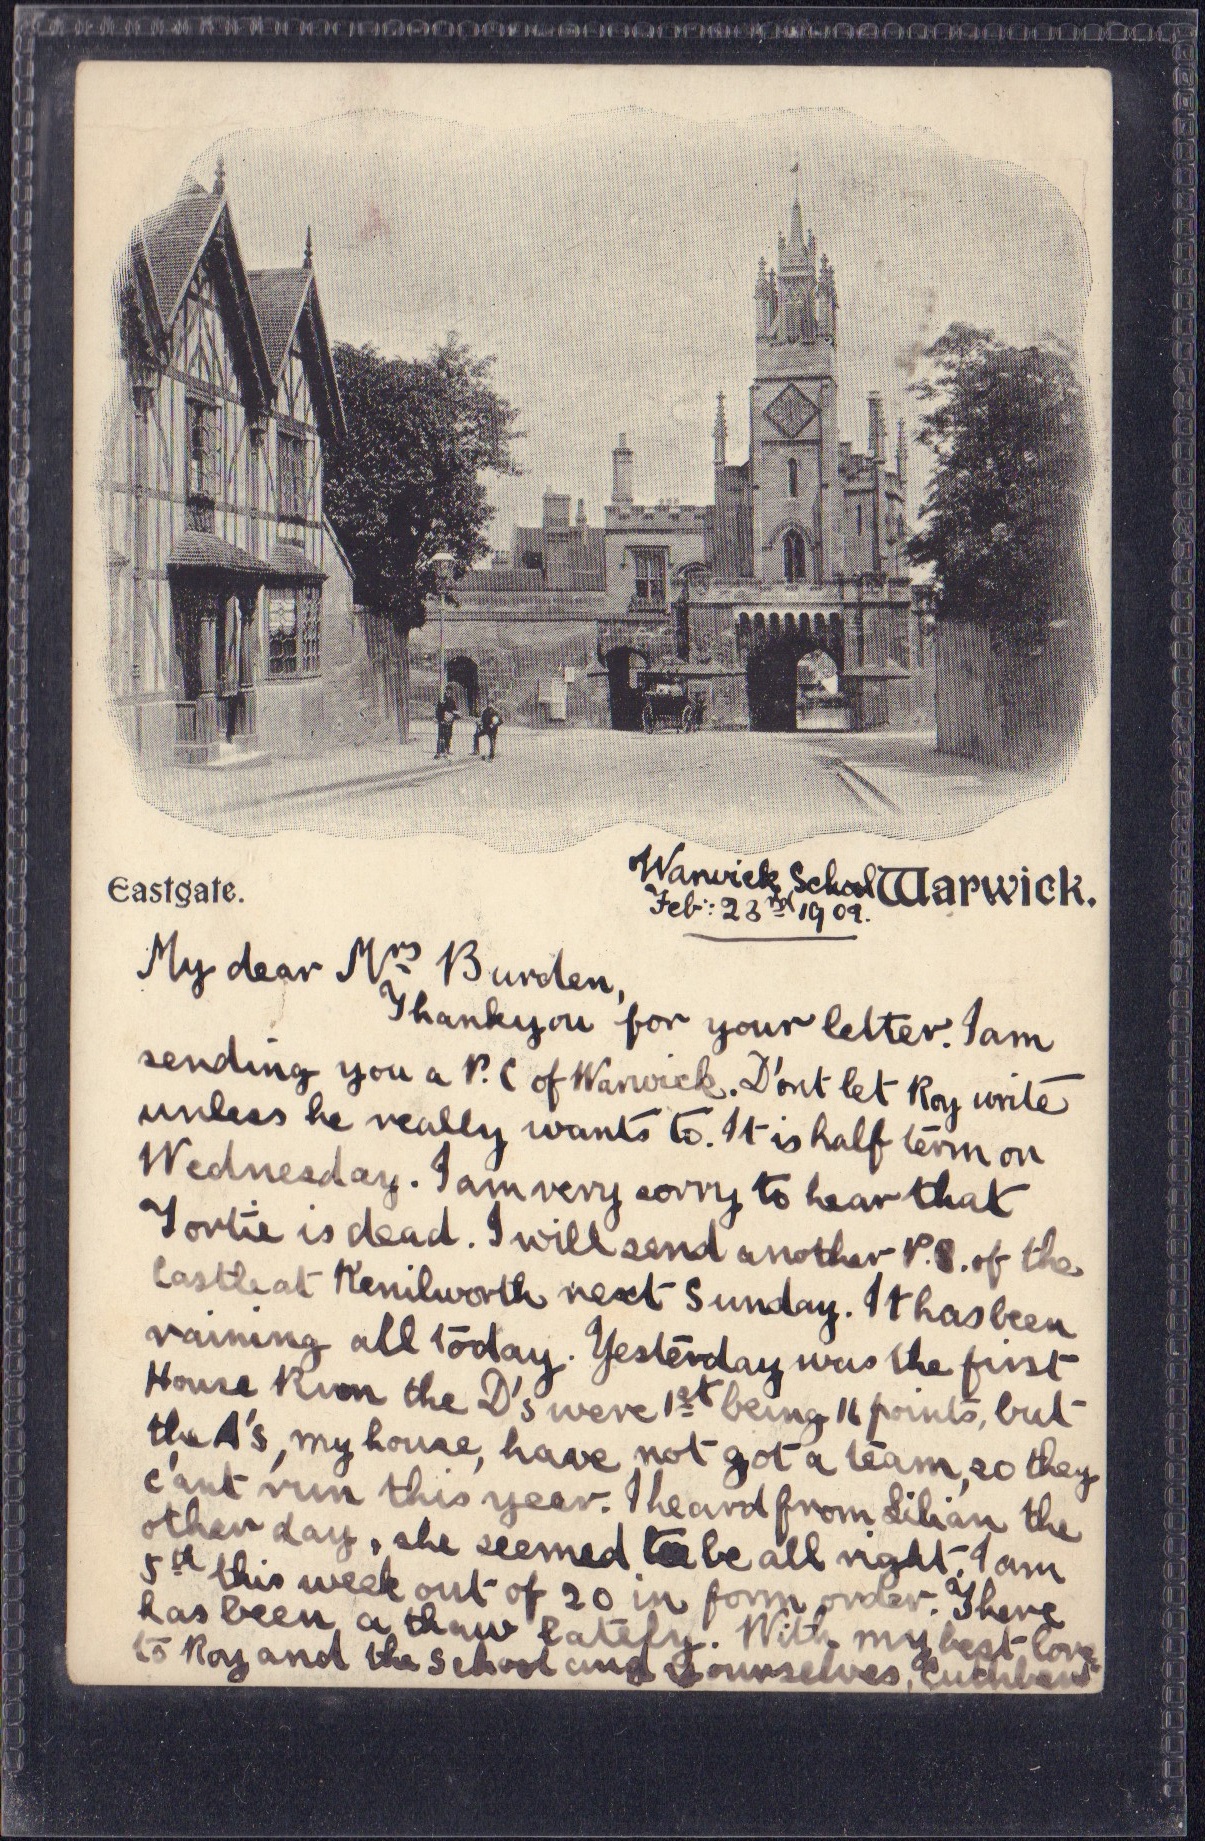 Eastgate.
Warwick School Warwick.
Feb: 23rd 1902.
My dear Mrs Burden,
Thankyou for your letter. I am
sending you a P.C of Warwick. D'ont let Roy write
unless he really wants to. It is half term on
Wednesday. I am very sorry to hear that
Tortie is dead. I will send another P.C. of the
Castle at Kenilworth next Sunday. It has been
raining all today. Yesterday was the first
House Run the D's were 1st being 16 points, but
the A's, my house, have not got a team, so they
c'ant run this year. I heard from Lilian the
other day, she seemed to be all right. I am
5th this week out of 20 in form order. There
has been a thaw lately. With my best love
to Roy and the School and yourselves, Cuthbert